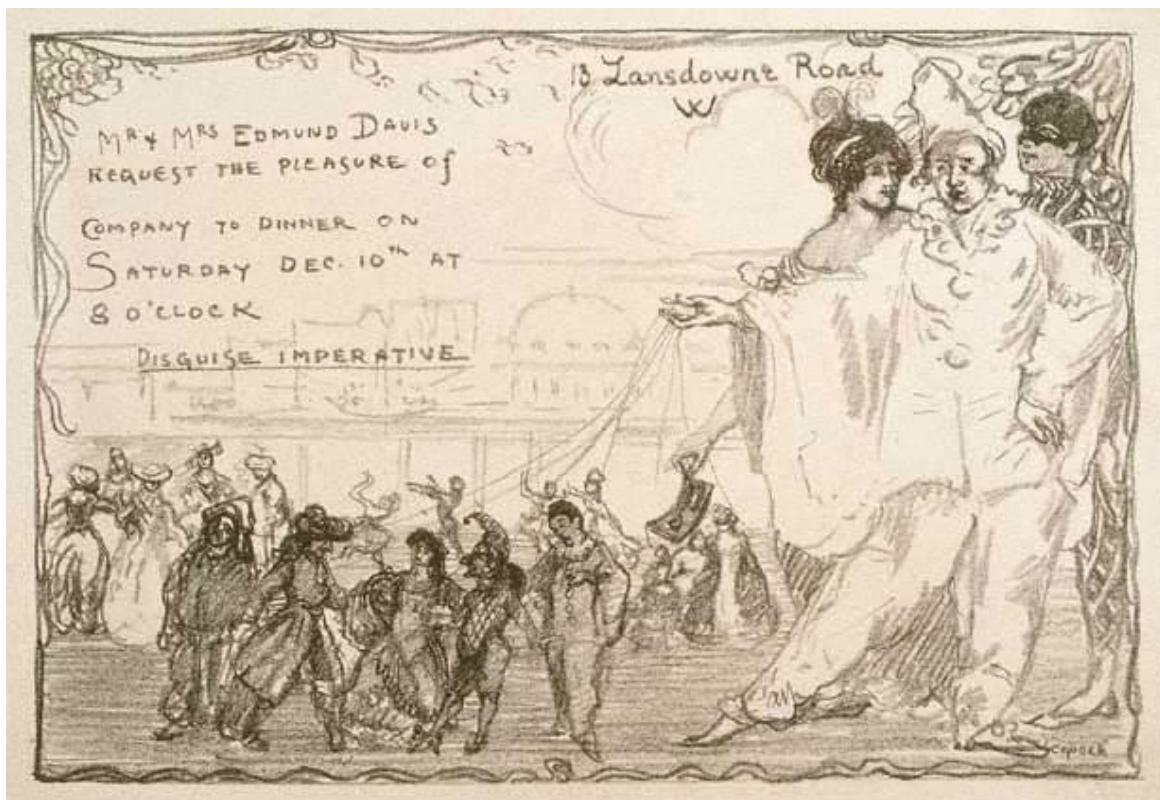 13 Lansdowne Road
W
MR & MRS EDMUND DAVIS
REQUEST THE PLEASURE Of
COMPANY TO DINNER ON
SATURDAY DEC. 10th AT
8 O'CLOCK
DISGUISE IMPERATIVE